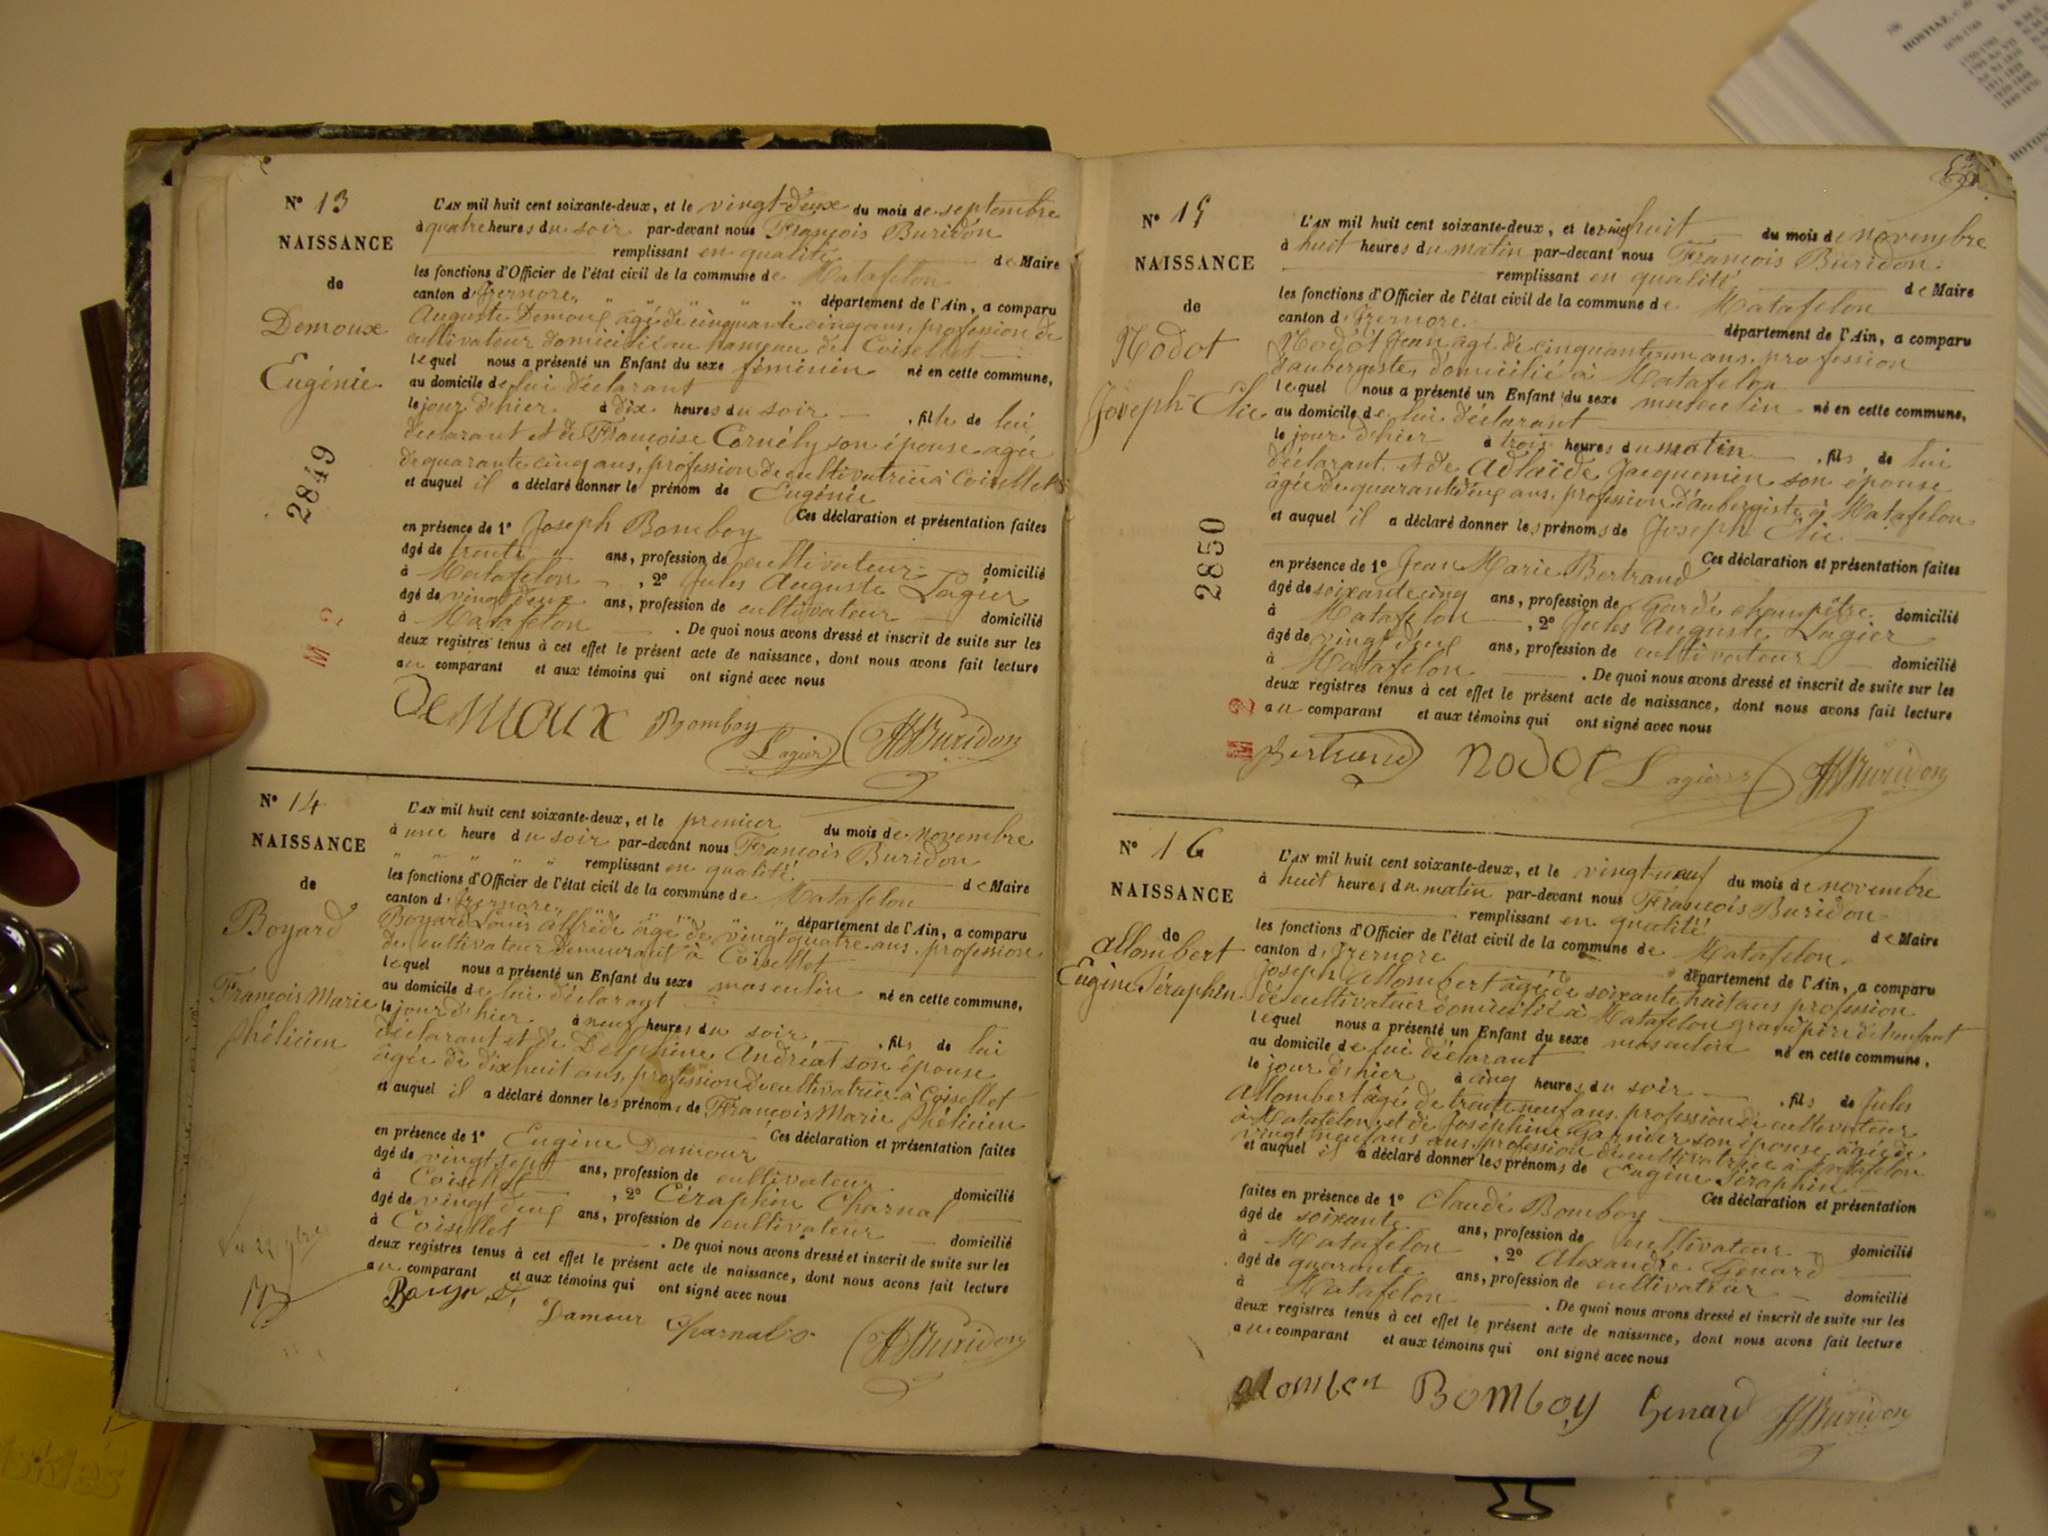 Nº 13
NAISSANCE
de
Demoux
Eugénie
2849
L'AN mil huit cent soixante-deux, et le vingt-deux du mois de septembre
à quatre heures du soir par-devant nous François Buridon
remplissant en qualité de Maire
les fonctions d'Officier de l'état civil de la commune de Matafelon
canton d'Izernore département de l'Ain, a comparu
Auguste Demoux âgé de cinquante cinq ans, profession de
cultivateur domicilié au hameau de Coisellet
lequel nous a présenté un Enfant du sexe féminin né en cette commune,
au domicile de lui déclarant
le jour d'hier à dix heures du soir , fille de lui
déclarant et de Françoise Cornély son épouse agée
de quarante cinq ans, profession de cultivatrice à Coisellet
et auquel il a déclaré donner le prénom de Eugénie
Ces déclaration et présentation faites
en présence de 1º Joseph Bomboy
âgé de trente ans, profession de cultivateur domicilié
à Matafelon , 2º Jules Auguste Lagier
âgé de vingt deux ans, profession de cultivateur domicilié
à Matafelon . De quoi nous avons dressé et inscrit de suite sur les
deux registres tenus à cet effet le présent acte de naissance, dont nous avons fait lecture
au comparant et aux témoins qui ont signé avec nous
Demoux Bomboy Lagier Buridon
Nº 14
NAISSANCE
de
Boyard
François Marie
phélicien
L'AN mil huit cent soixante-deux, et le premier du mois de novembre
à une heure du soir par-devant nous François Buridon
remplissant en qualité de Maire
les fonctions d'Officier de l'état civil de la commune de Matafelon
canton d'Izernore département de l'Ain, a comparu
Boyard Louis alfrède âgé de vingt quatre ans, profession
de cultivateur Demeurant à Coisellet
lequel nous a présenté un Enfant du sexe masculin né en cette commune,
au domicile de lui déclarant
le jour d'hier à neuf heures du soir , fils de lui
déclarant et de Delphine Andréat son épouse
âgée de dixhuit ans, profession de cultivatrice à Coisellet
et auquel il a déclaré donner les prénoms de François Marie phélicien
Ces déclaration et présentation faites
en présence de 1º Eugène Damour
âgé de vingt sept ans, profession de cultivateur domicilié
à Coisellet , 2º Céraphin Charnal
âgé de vingt deux ans, profession de cultivateur domicilié
à Coisellet . De quoi nous avons dressé et inscrit de suite sur les
deux registres tenus à cet effet le présent acte de naissance, dont nous avons fait lecture
au comparant et aux témoins qui ont signé avec nous
Damour Charnal Buridon
Nº 15
NAISSANCE
de
Nodot
Joseph Elie
2850
L'AN mil huit cent soixante-deux, et le huit du mois de novembre
à huit heures du matin par-devant nous François Buridon
remplissant en qualité de Maire
les fonctions d'Officier de l'état civil de la commune de Matafelon
canton d'Izernore département de l'Ain, a comparu
Nodot Jean âgé de cinquante un ans, profession
d'aubergiste, domicilié à Matafelon
lequel nous a présenté un Enfant du sexe masculin né en cette commune,
au domicile de lui déclarant
le jour d'hier à trois heures du matin , fils de lui
déclarant et de Adlaïde Jacquemin son épouse
âgée de quarante cinq ans, profession d'aubergiste à Matafelon
et auquel il a déclaré donner les prénoms de Joseph Elie
Ces déclaration et présentation faites
en présence de 1º Jean Marie Bertrand
âgé de soixante cinq ans, profession de Garde champêtre domicilié
à Matafelon , 2º Jules Auguste Lagier
âgé de vingt deux ans, profession de cultivateur domicilié
à Matafelon . De quoi nous avons dressé et inscrit de suite sur les
deux registres tenus à cet effet le présent acte de naissance, dont nous avons fait lecture
au comparant et aux témoins qui ont signé avec nous
Bertrand Nodot Lagier Buridon
Nº 16
NAISSANCE
de
allombert
Eugène Séraphin
L'AN mil huit cent soixante-deux, et le vingt-neuf du mois de novembre
à huit heures du matin par-devant nous François Buridon
remplissant en qualité de Maire
les fonctions d'Officier de l'état civil de la commune de Matafelon
canton d'Izernore département de l'Ain, a comparu
Joseph allombert âgé de soixante huit ans profession
de cultivateur domicilié à Matafelon grand père de l'enfant
lequel nous a présenté un Enfant du sexe masculin né en cette commune,
au domicile de lui déclarant
le jour d'hier à cinq heures du soir , fils de Jules
allombert âgé de trente neuf ans, profession de cultivateur
à Matafelon, et de Joséphine Garnier son épouse, âgée de
vingt neuf ans, profession de cultivatrice à Matafelon
et auquel il a déclaré donner les prénoms de Eugène Séraphin
Ces déclaration et présentation
faites en présence de 1º Claude Bomboy
âgé de soixante ans, profession de cultivateur domicilié
à Matafelon , 2º Alexandre Genard
âgé de quarante ans, profession de cultivateur domicilié
à Matafelon . De quoi nous avons dressé et inscrit de suite sur les
deux registres tenus à cet effet le présent acte de naissance, dont nous avons fait lecture
au comparant et aux témoins qui ont signé avec nous
Bomboy Genard Buridon